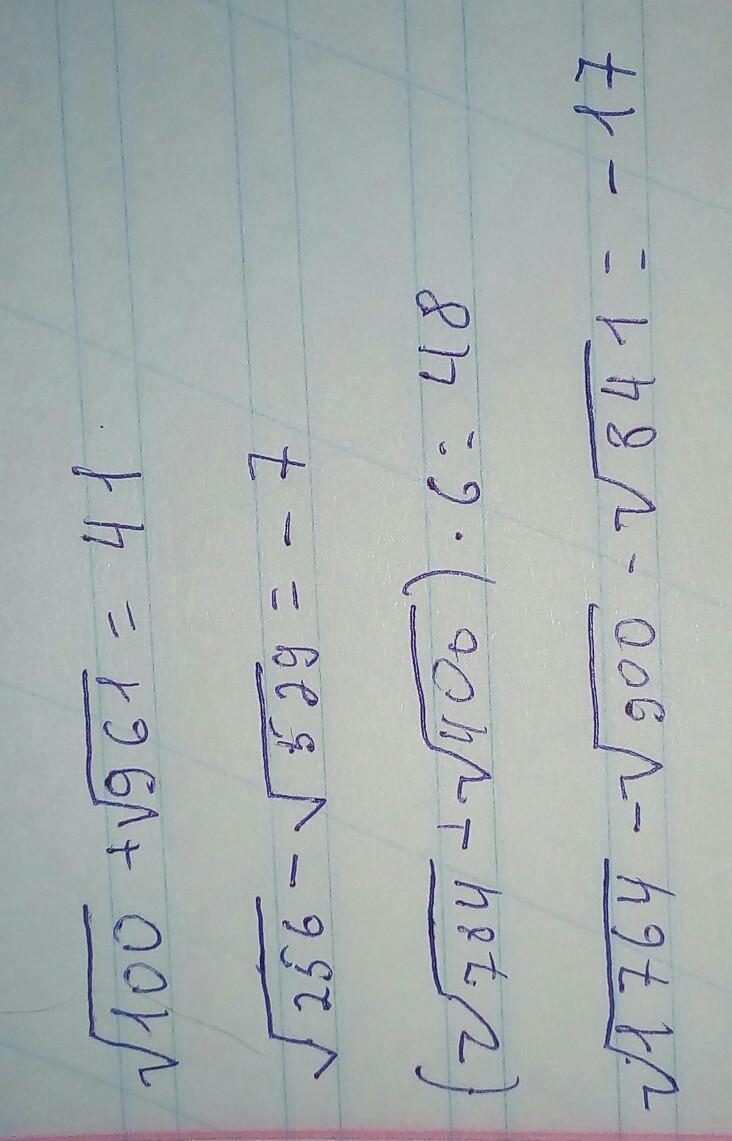 √100 + √961 = 41
√256 - √529 = - 7
(√784 - √400) · 6 = 48
√1764 - √900 - √841 = - 17